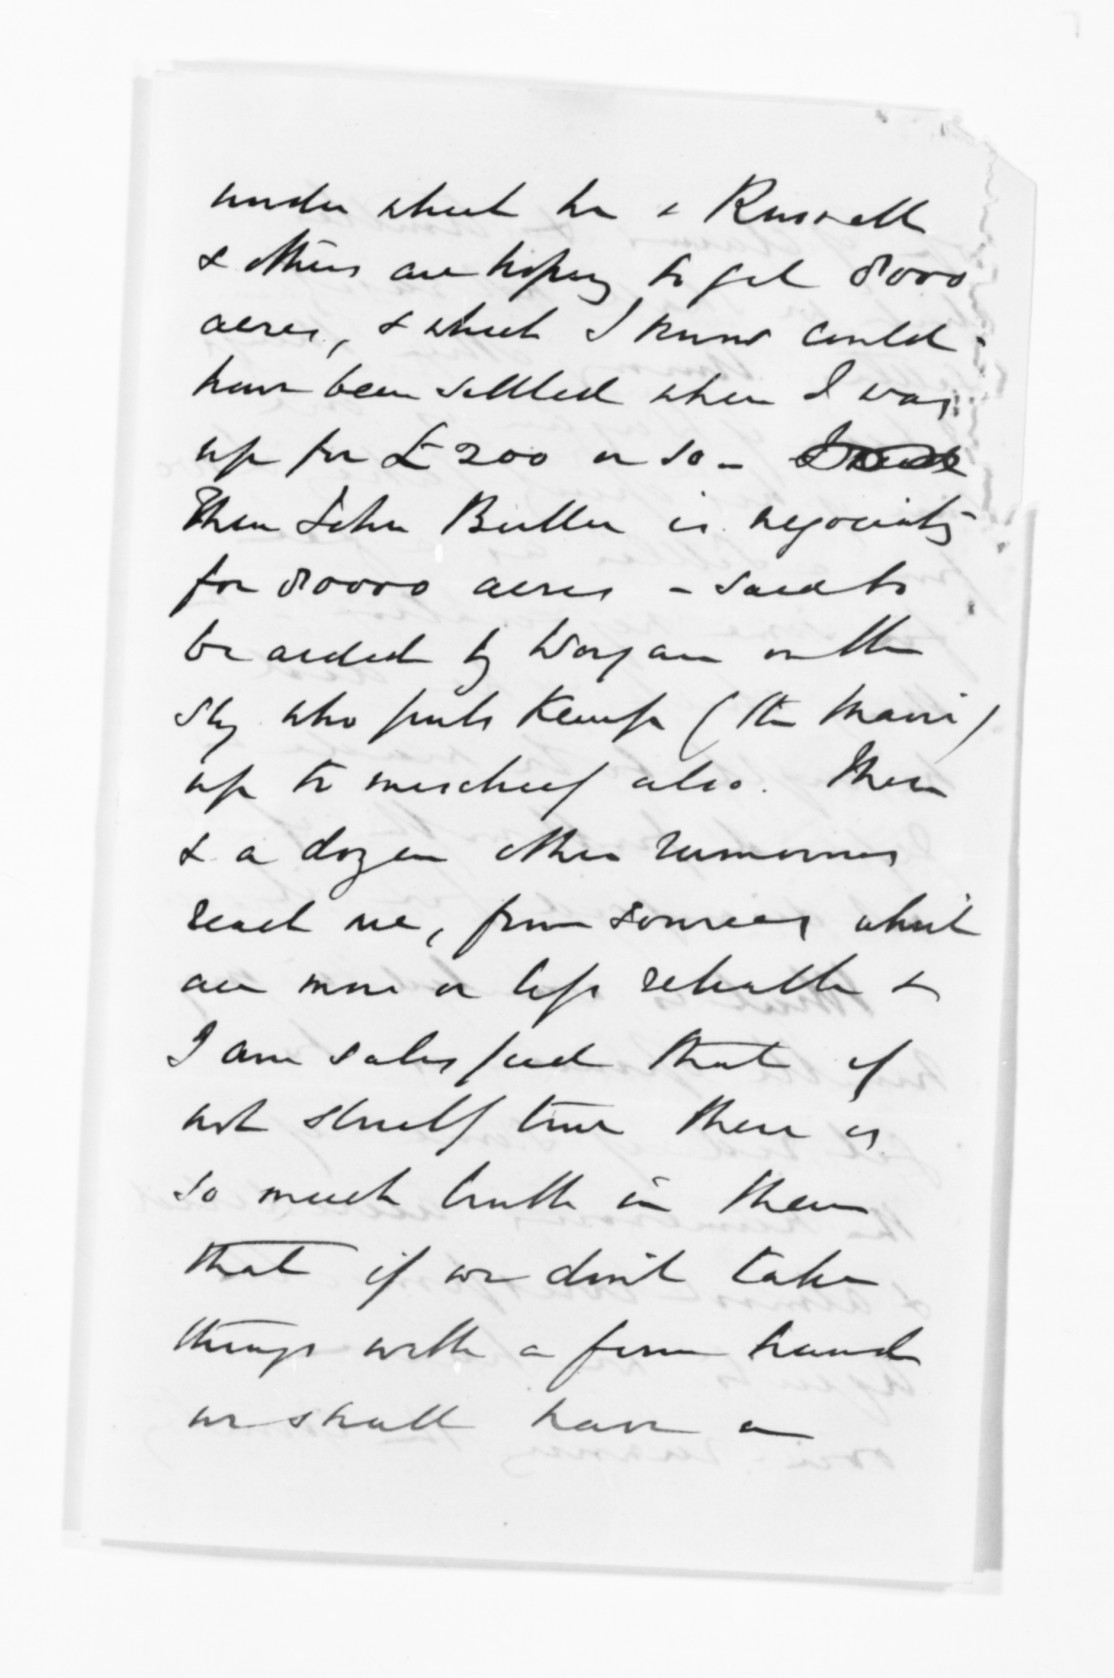 under which he & Russell
& others are hoping to get 8000
acres, & which I know could
have been settled when I was
up for £200 or so -
Then John Butler is negociatg
for 80000 acres - said to
be aided by Worgan on the
sly who puts Kemp (the Maori)
up to mischief also. These
& a dozen other rumours
reach me, from sources which
are more or less reliable &
I am satisfied that if
not strictly true there is
so much truth in them
that if we don't take
things with a firm hand
we shall have a